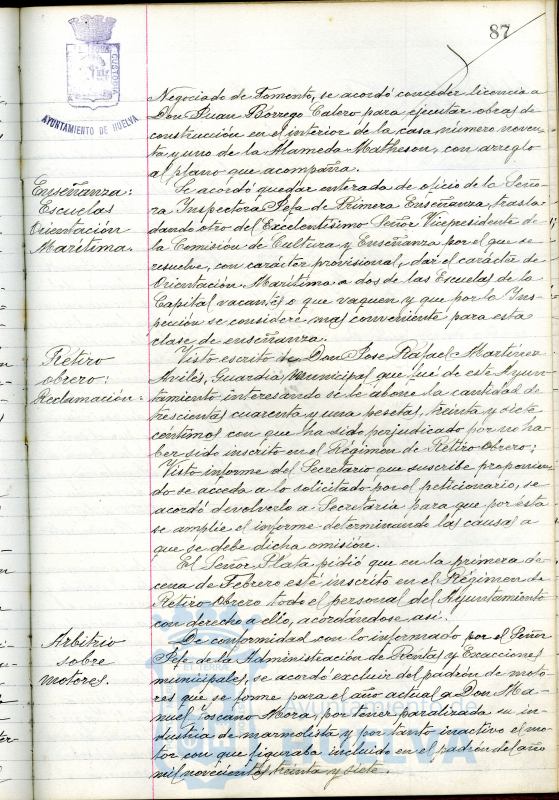 87
AYUNTAMIENTO DE HUELVA
Negociado de Fomento, se acordó conceder licencia a
Don Juan Borrego Calero para ejecutar obras de
construcción en el interior de la casa número noven-
ta y uno de la Alameda Matheson, con arreglo
al plano que acompaña.
Enseñanza:
Escuelas
Orientación
Marítima.
Se acordó quedar enterada de oficio de la Seño-
ra Inspectora Jefa de Primera Enseñanza, trasla-
dando otro del Excelentísimo Señor Vicepresidente de
la Comisión de Cultura y Enseñanza por el que se
resuelve, con carácter provisional, dar el carácter de
Orientación Marítima a dos de las Escuelas de la
Capital vacantes o que vaquen y que por la Ins-
pección se considere mas conveniente para esta
clase de enseñanza.
Retiro
obrero:
Reclamación:
Visto escrito de Don Jose Rafael Martínez
Avilés, Guardia municipal que fué de este Ayun-
tamiento interesando se le abone la cantidad de
trescientas cuarenta y una pesetas, treinta y siete
céntimos con que ha sido perjudicado por no ha-
ber sido inscrito en el Régimen de Retiro Obrero;
Visto informe del Secretario que suscribe proponien-
do se acceda a lo solicitado por el peticionario, se
acordó devolverlo a Secretaría para que por esta
se amplíe el informe determinando las causas a
que se debe dicha omisión.
El Señor Plata pidió que en la primera de-
cena de Febrero esté inscrito en el Régimen de
Retiro Obrero todo el personal del Ayuntamiento
con derecho a ello, acordándose así.
Arbitrio
sobre
motores.
De conformidad con lo informado por el Señor
Jefe de la Administración de Rentas y Exacciones
municipales, se acordó excluir del padrón de moto-
res que se forme para el año actual a Don Ma-
nuel Toscano Mora, por tener paralizada su in-
dustria de marmolista y por tanto inactivo el mo-
tor con que figuraba incluido en el padrón del año
mil novecientos treinta y siete.
Ayuntamiento de
HUELVA